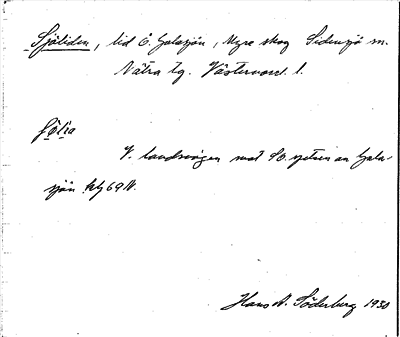 Sjöliden, lid Ö. Galasjön, Myre skog Sidensjö sn.
Nätra tg. Västernorrl. l.
V. landsvägen mot SO. spetsen av Gala-
sjön kbj 69 N.
Hans A. Söderberg 1930